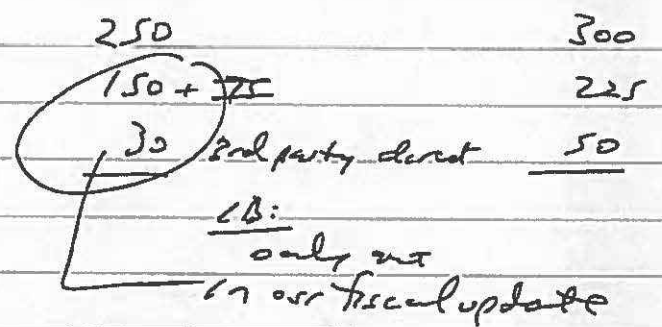 250 300
150 + 75 225
30 3rd party direct 50
LB:
only
in our fiscal update